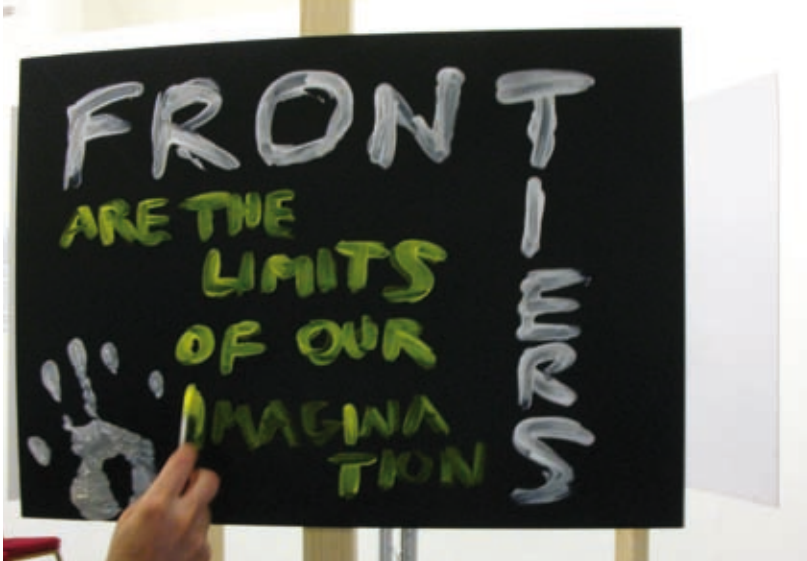 FRONTIERS
ARE THE
LIMITS
OF OUR
IMAGINA
TION